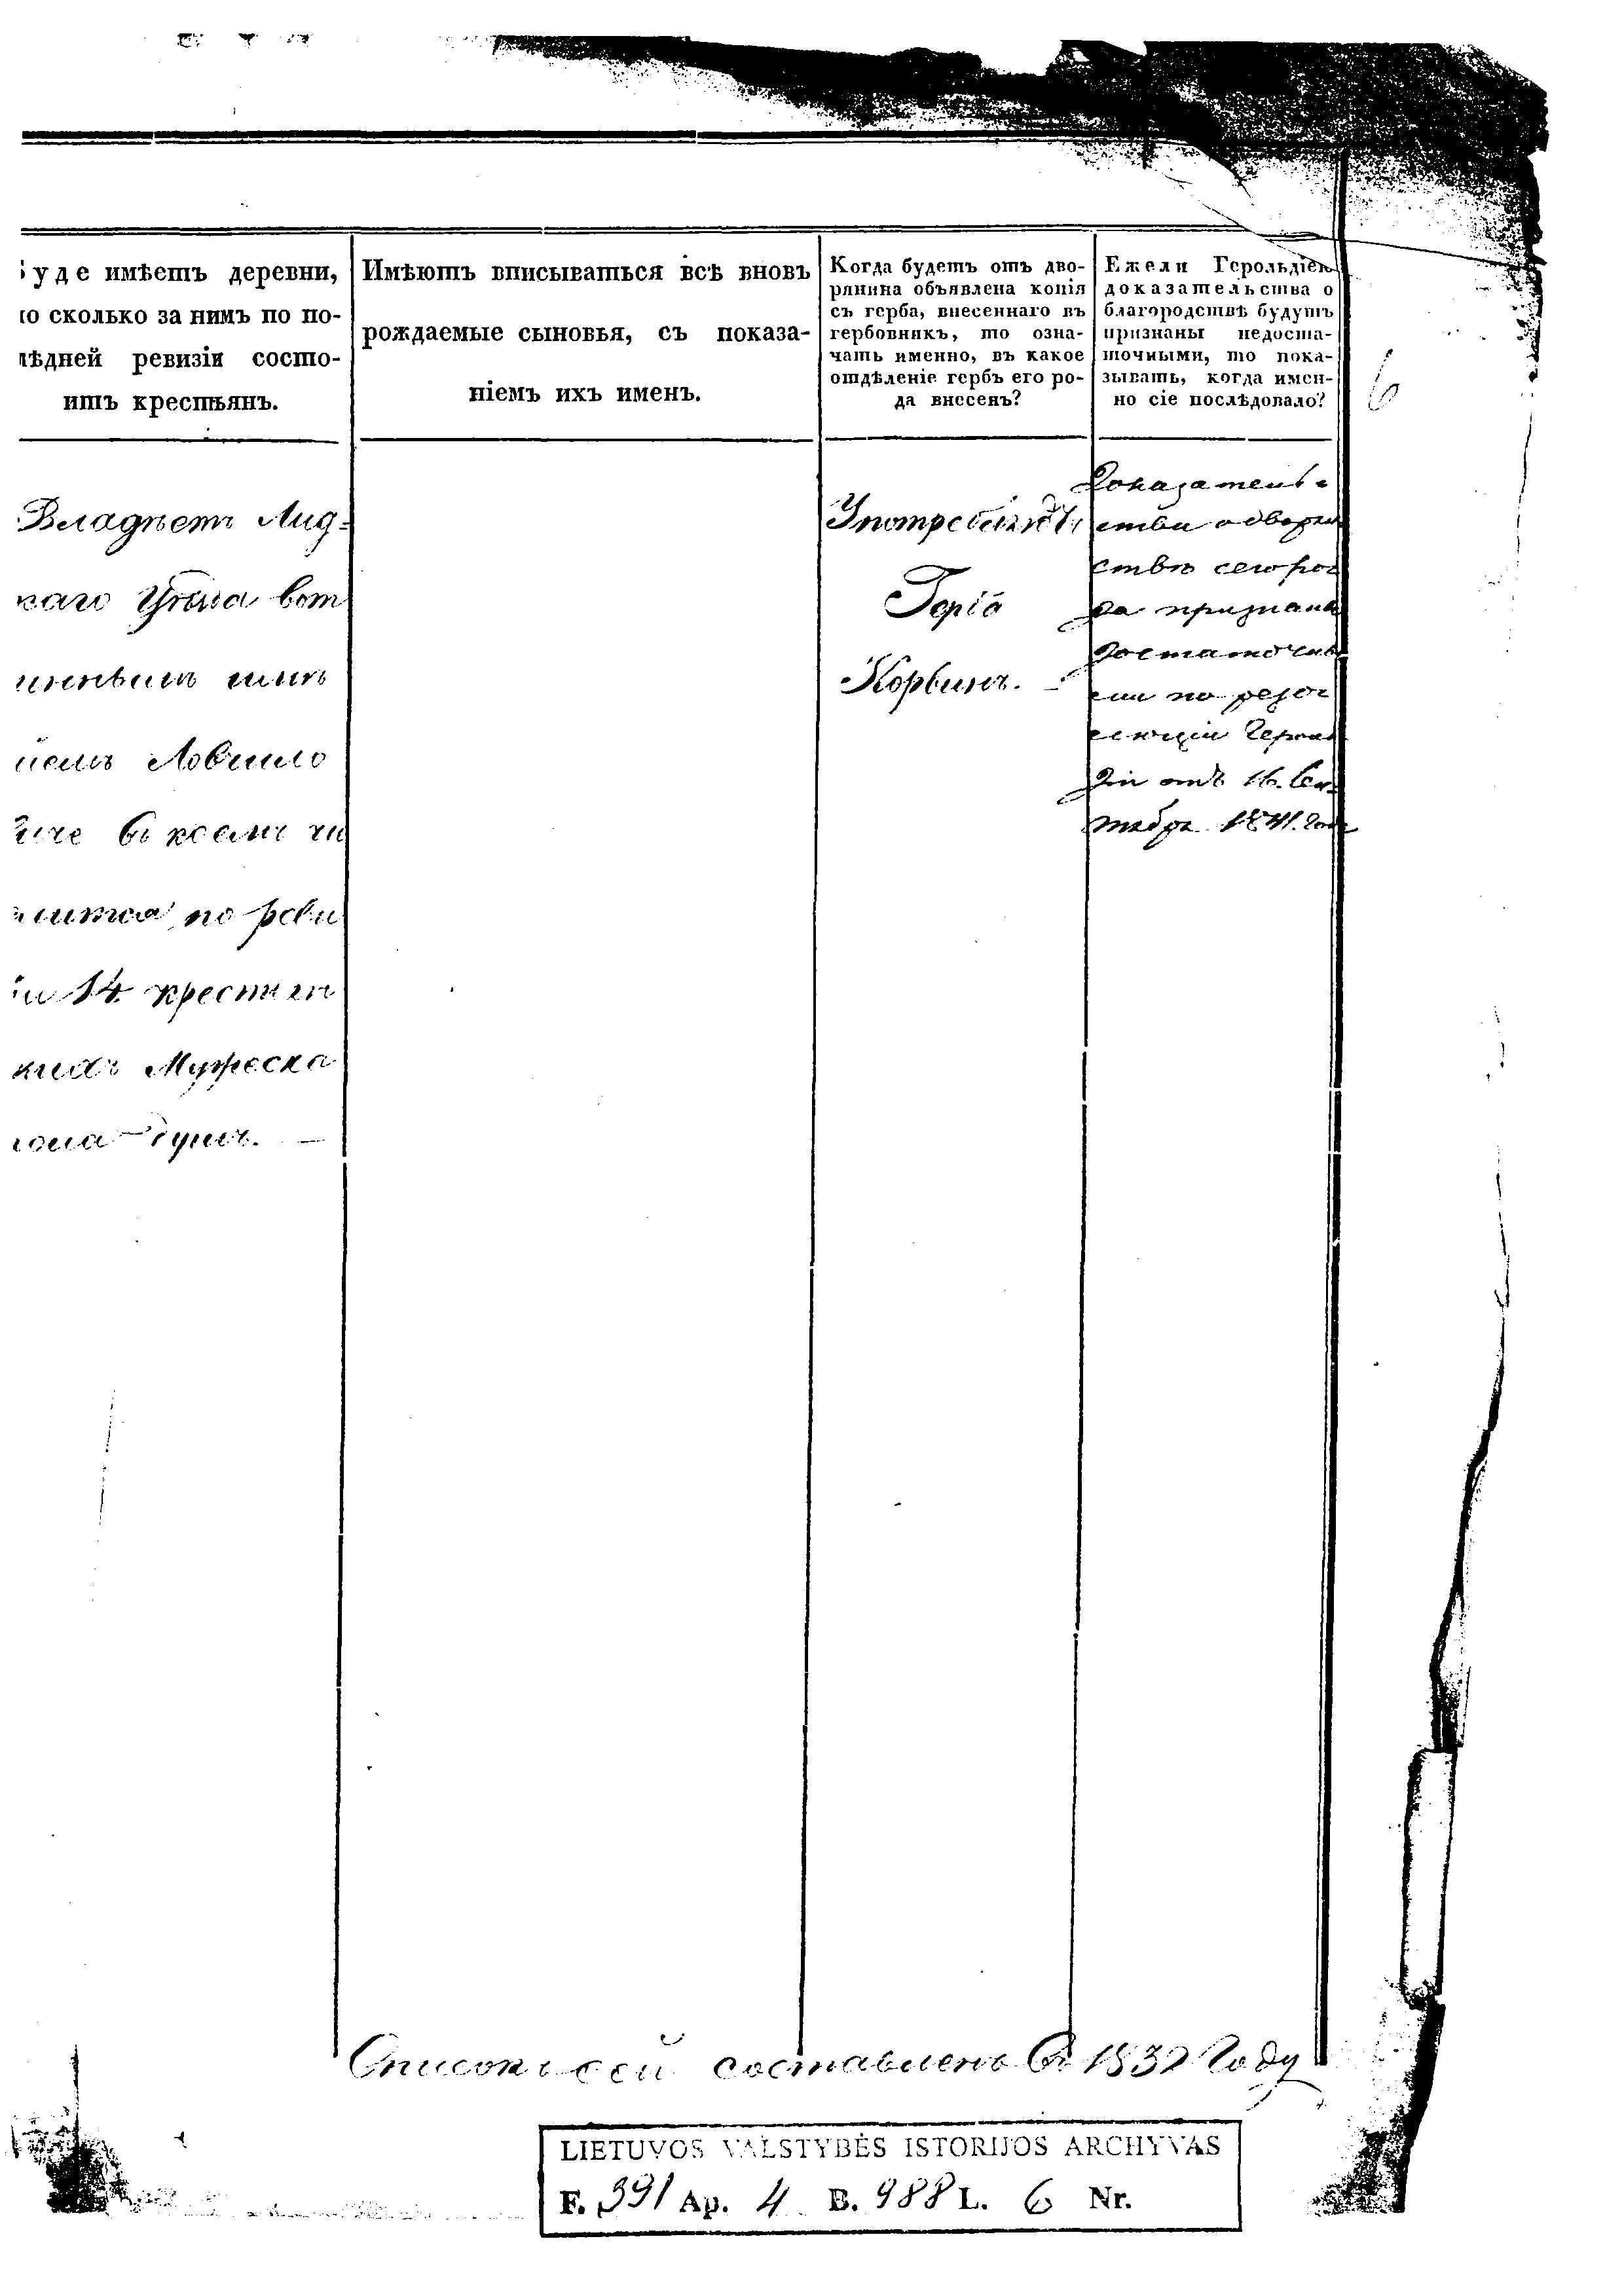 уде имѣетъ деревни,
о сколько за нимъ по по-
лѣдней ревизіи состо-
итъ крестьянъ.
Имѣютъ вписываться всѣ вновь
рождаемые сыновья, съ показа-
ніемъ ихъ именъ.
Когда будетъ отъ дво-
рянина объявлена копія
съ герба, внесеннаго въ
гербовникъ, то озна-
чать именно, въ какое
отдѣленіе гербъ его ро-
да внесенъ?
Ежели Герольдіею
доказательства о
благородствѣ будутъ
признаны недоста-
точными, то пока-
зывать, когда имен-
но сіе послѣдовало?
6
Владѣетъ Лид-
каго Уѣзда вот
имѣ
Ловчило
въ коемъ чи
лится по реви
іи 14 крестьян
кихъ Мужеска
пола душъ. —
Гербъ
Корвинъ. —
Доказатель-
ства о дворян
ствѣ сего ро-
да признаны
достаточны
ми по резо-
люціи Герол
діи отъ 16. Сен-
тября 1841. года
Списокъ сей составленъ въ 1832 Году
LIETUVOS VALSTYBĖS ISTORIJOS ARCHYVAS
F. 391 Ap. 4 B. 988 L. 6 Nr.